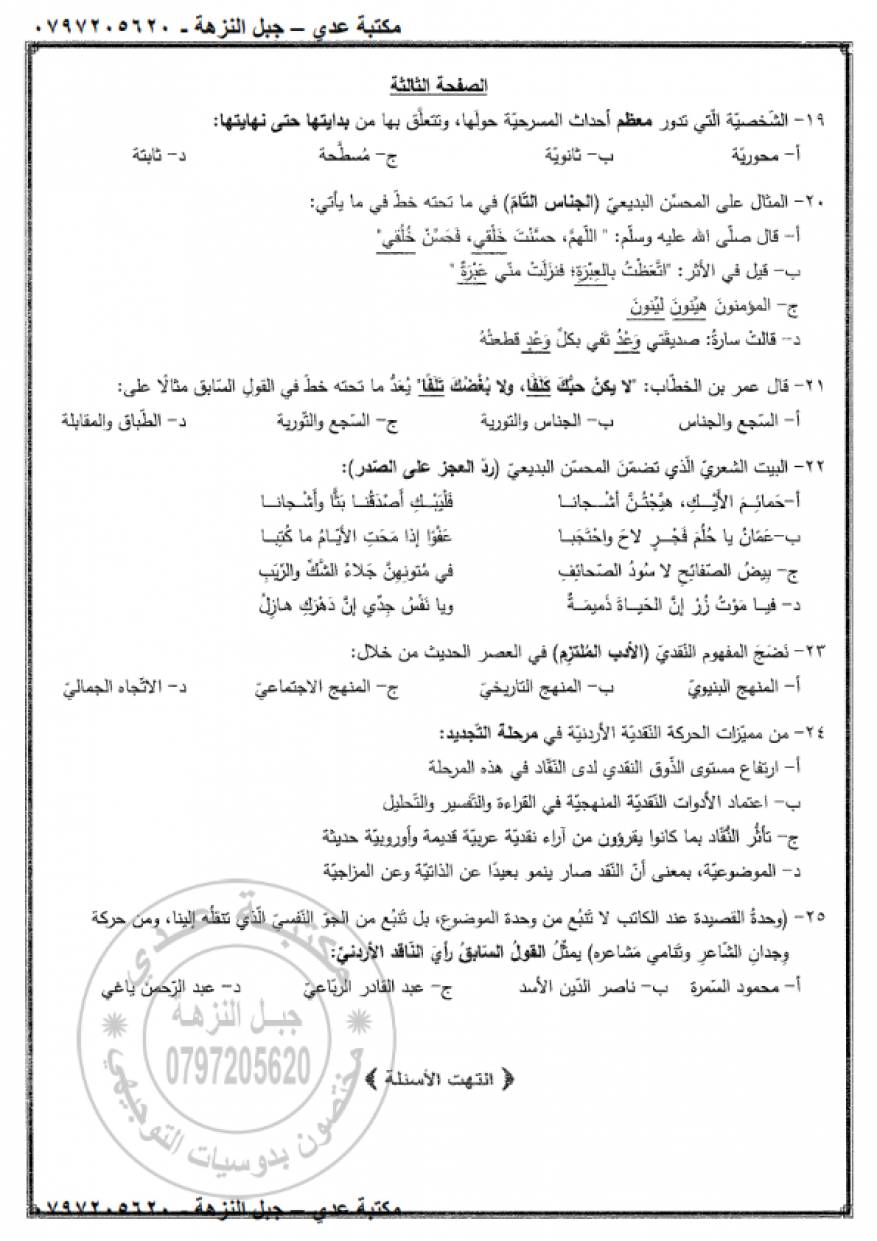 مكتبة عدي – جبل النزهة ـ ٠٧٩٧٢٠٥٦٢٠
الصفحة الثالثة
١٩- الشّخصيّة الّتي تدور معظم أحداث المسرحيّة حولَها، وتتعلَّق بها من بدايتها حتى نهايتها:
أ- محوريّة ب- ثانويّة ج- مُسطَّحة د- ثابتة
٢٠- المثال على المحسَّن البديعيّ (الجناس التّامّ) في ما تحته خطّ في ما يأتي:
أ- قال صلّى الله عليه وسلّم: " اللّهمَّ، حسَّنْتَ خَلْقي، فَحَسِّنْ خُلُقي"
ب- قيل في الأثر: "اتَّعَظْتُ بالعِبْرَةِ؛ فنزَلَتْ منّي عَبْرَةٌ "
ج- المؤمنونَ هيِّنونَ ليِّنونَ
د- قالتْ سارةُ: صديقَتي وَعْدُ تَفي بكلِّ وَعْدٍ قطعتْهُ
٢١- قال عمر بن الخطّاب: "لا يكنْ حبُّكَ كَلَفًا، ولا بُغْضُكَ تَلَفًا" يُعَدُّ ما تحته خطّ في القولِ السّابق مثالًا على:
أ- السّجع والجناس ب- الجناس والتورية ج- السّجع والتّورية د- الطّباق والمقابلة
٢٢- البيت الشعريّ الّذي تضمّنَ المحسّن البديعيّ (ردّ العجز على الصّدر):
أ-حَمائِـمَ الأَيْـكِ، هيَّجْتُـنَّ أشْـجانـا فَلْيَبْـكِ أَصْدَقُنـا بَثًّا وأَشْـجانـا
ب-عَمّانُ يا حُلُمَ فَجْـرٍ لاحَ واحْتَجَبـا عَفْوًا إذا مَحَتِ الأيّـامُ ما كُتِبـا
ج- بِيضُ الصّفائِحِ لا سُودُ الصّحائِفِ في مُتونِهِنَّ جَلاءُ الشّكِّ والرّيَبِ
د- فيـا مَوْتُ زُرْ إنَّ الحَيـاةَ ذَميمَـةٌ ويا نَفْسُ جِدِّي إنَّ دَهْرَكِ هازِلُ
٢٣- نَضَجَ المفهوم النّقديّ (الأدب المُلتزم) في العصر الحديث من خلال:
أ- المنهج البنيويّ ب- المنهج التاريخيّ ج- المنهج الاجتماعيّ د- الاتّجاه الجماليّ
٢٤- من مميّزات الحركة النّقديّة الأردنيّة في مرحلة التّجديد:
أ- ارتفاع مستوى الذّوق النقدي لدى النّقّاد في هذه المرحلة
ب- اعتماد الأدوات النّقديّة المنهجيّة في القراءة والتّفسير والتّحليل
ج- تأثُّر النُّقّاد بما كانوا يقرؤون من آراء نقديّة عربيّة قديمة وأوروبيّة حديثة
د- الموضوعيّة، بمعنى أنّ النّقد صار ينمو بعيدًا عن الذاتيّة وعن المزاجيّة
٢٥- (وحدةُ القصيدة عند الكاتب لا تَنبُع من وحدة الموضوع، بل تَنبُع من الجوّ النّفسيّ الّذي تنقلُه إلينا، ومن حركة
وِجدانِ الشّاعرِ وتَنامي مَشاعره) يمثِّلُ القولُ السّابقُ رأيَ النّاقد الأردنيّ:
أ- محمود السّمرة ب- ناصر الدّين الأسد ج- عبد القادر الربّاعيّ د- عبد الرّحمن ياغي
﴿ انتهت الأسئلة ﴾
مكتبة عدي
جبل النزهة
0797205620
مختصون بدوسيات التوجيهي
مكتبة عدي – جبل النزهة ـ ٠٧٩٧٢٠٥٦٢٠